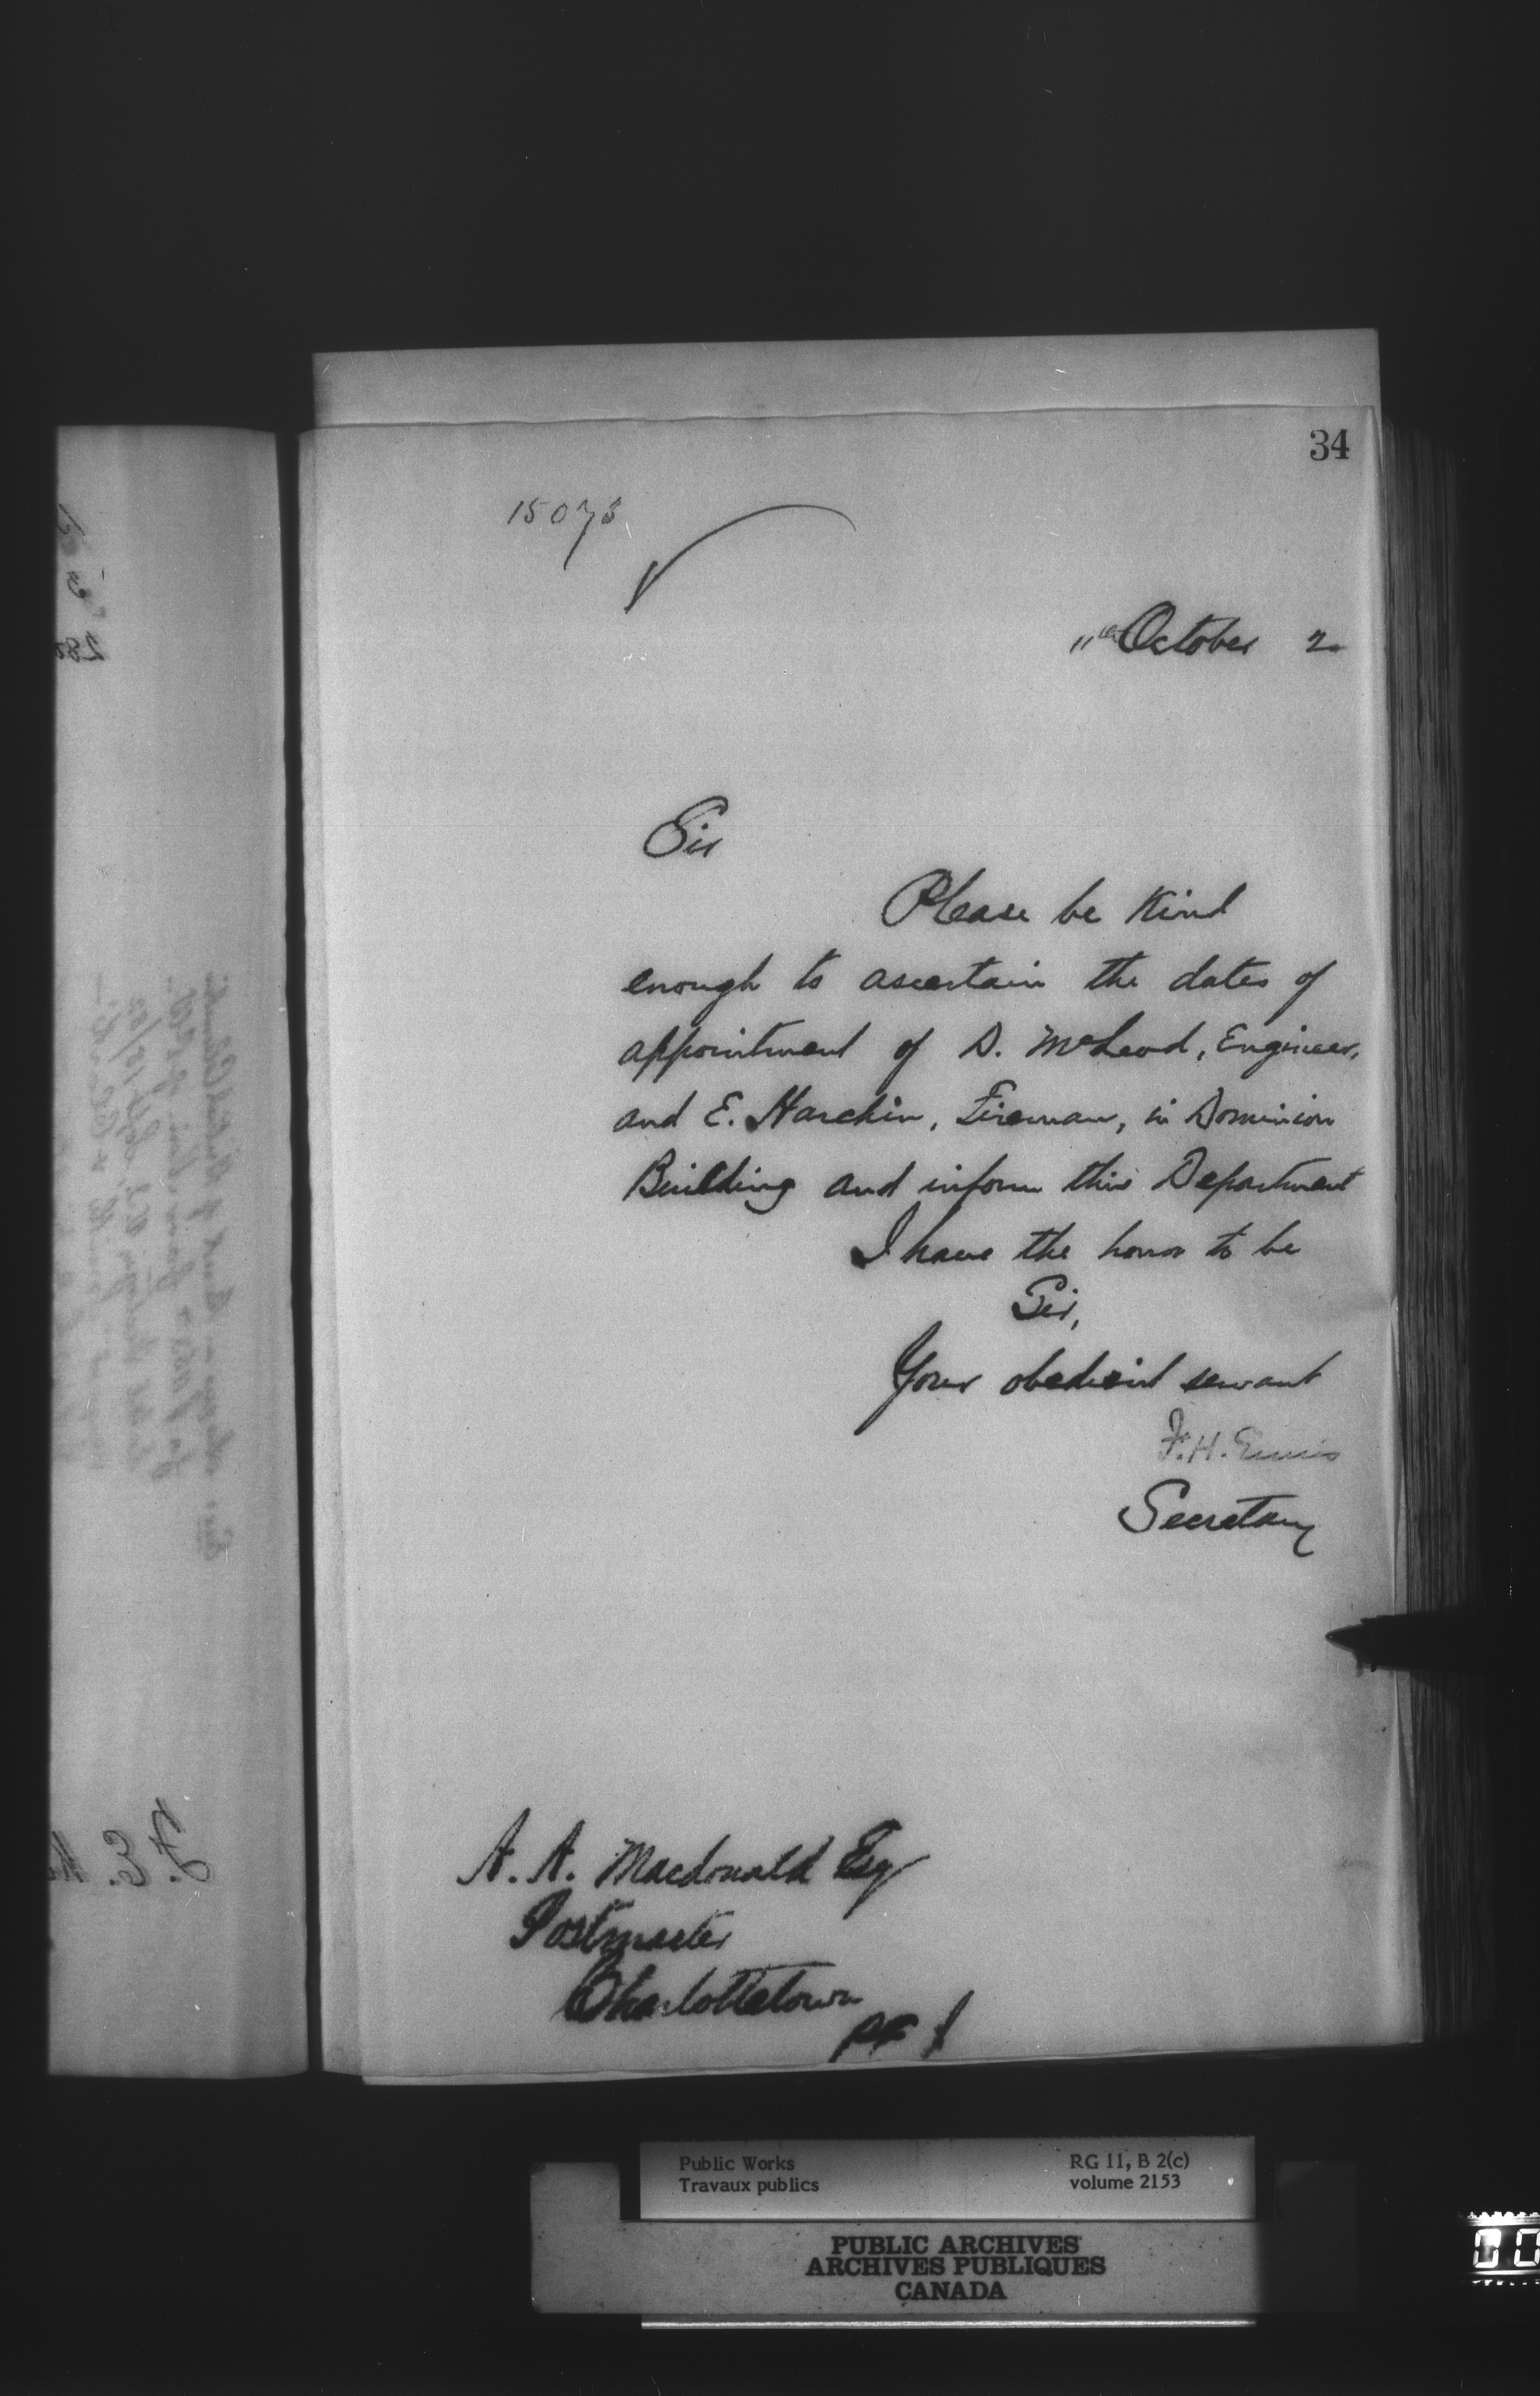 34
15073
11th October 2
Sir
Please be Kind
enough to ascertain the dates of
appointment of D. McLeod, Engineer,
and E. Harckin, Fireman, in Dominion
Building and inform this Department
I have the honor to be
Sir,
Your obedient servant
F. H. Ennis
Secretary
A. A. Macdonald Esq
Postmaster
Charlottetown
Public Works
Travaux publics
RG 11, B 2(c)
volume 2153
PUBLIC ARCHIVES
ARCHIVES PUBLIQUES
CANADA